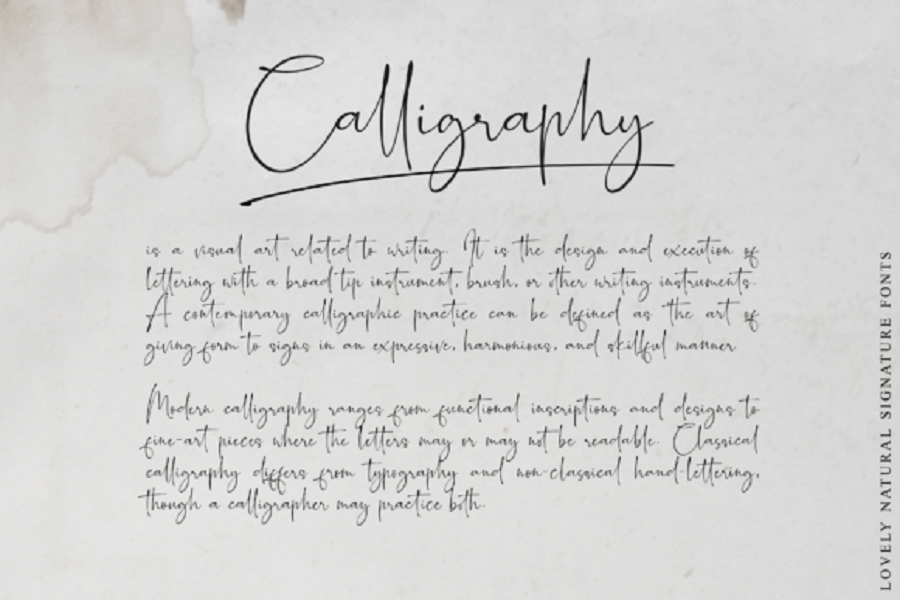 Calligraphy
is a visual art related to writing. It is the design and execution of
lettering with a broad tip instrument, brush, or other writing instruments.
A contemporary calligraphic practice can be defined as "the art of
giving form to signs in an expressive, harmonious, and skillful manner
Modern calligraphy ranges from functional inscriptions and designs to
fine-art pieces where the letters may or may not be readable. Classical
calligraphy differs from typography and non-classical hand-lettering,
though a calligrapher may practice both.
LOVELY NATURAL SIGNATURE FONTS